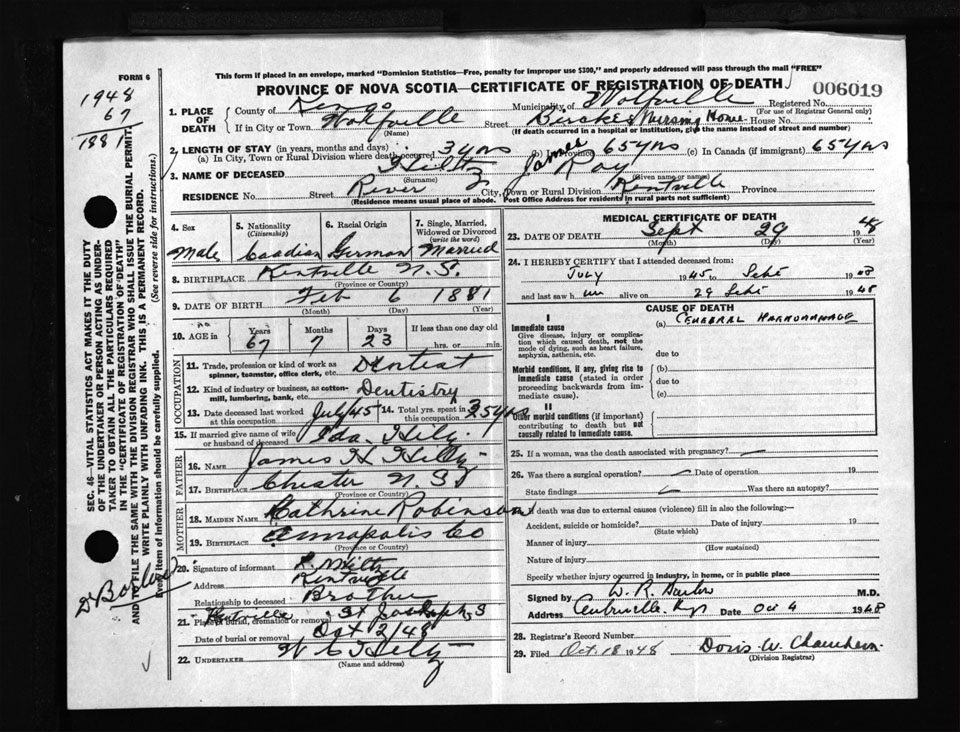 FORM 6
This form if placed in an envelope, marked "Dominion Statistics—Free, penalty for improper use $300," and properly addressed will pass through the mail "FREE"
PROVINCE OF NOVA SCOTIA—CERTIFICATE OF REGISTRATION OF DEATH
006019
1948
67
1881
1. PLACE OF DEATH
County of Kings Municipality of Wolfville Registered No.
(For use of Registrar General only)
If in City or Town Wolfville Street Nursing Home House No.
(Name) (If death occurred in a hospital or institution, give the name instead of street and number)
2. LENGTH OF STAY (in years, months and days)
(a) In City, Town or Rural Division where death occurred 3 yrs (b) In Province 65 yrs (c) In Canada (if immigrant) 65 yrs
3. NAME OF DECEASED Hiltz James Ray
(Surname) (Given name or names)
RESIDENCE No. Street River City, Town or Rural Division Kentville Province
(Residence means usual place of abode. Post Office Address for residents in rural parts not sufficient)
4. Sex Male
5. Nationality (Citizenship) Caadian
6. Racial Origin German
7. Single, Married, Widowed or Divorced (write the word) Married
8. BIRTHPLACE Kentville N.S.
(Province or Country)
9. DATE OF BIRTH Feb 6 1881
(Month) (Day) (Year)
10. AGE in Years 67 Months 7 Days 23 If less than one day old hrs. or min.
OCCUPATION
11. Trade, profession or kind of work as spinner, teamster, office clerk, etc. Dentist
12. Kind of industry or business, as cotton-mill, lumbering, bank, etc. Dentistry
13. Date deceased last worked at this occupation July/45 14. Total yrs. spent in this occupation 35 yrs
15. If married give name of wife or husband of deceased Ida Hiltz
FATHER
16. Name James H Hiltz
17. Birthplace Chester N.S.
(Province or Country)
MOTHER
18. MAIDEN NAME Cathrine Robinson
19. BIRTHPLACE Annapolis Co
(Province or Country)
20. Signature of informant Hiltz
Address Kentville
Relationship to deceased Brother
21. Place of burial, cremation or removal Kentville St Josephs
Date of burial or removal Oct 2/48
22. UNDERTAKER W C Hiltz
(Name and address)
MEDICAL CERTIFICATE OF DEATH
23. DATE OF DEATH Sept 29 1948
(Month) (Day) (Year)
24. I HEREBY CERTIFY that I attended deceased from:
July 1945 to Sept 1948
and last saw him alive on 29 Sept 1948
CAUSE OF DEATH
I
Immediate cause
Give disease, injury or complication which caused death, not the mode of dying, such as heart failure, asphyxia, asthenia, etc.
(a) CEREBRAL HARMORANAGE
due to
Morbid conditions, if any, giving rise to immediate cause (stated in order proceeding backwards from immediate cause).
(b)
due to
(c)
II
Other morbid conditions (if important) contributing to death but not causally related to immediate cause.
25. If a woman, was the death associated with pregnancy?
26. Was there a surgical operation? Date of operation 19
State findings Was there an autopsy?
27. If death was due to external causes (violence) fill in also the following:—
Accident, suicide or homicide? Date of injury 19
(State which)
Manner of injury
(How sustained)
Nature of injury
Specify whether injury occurred in industry, in home, or in public place
Signed by W. R. M.D.
Address Centreville Date Oct 4 1948
28. Registrar's Record Number
29. Filed Oct. 18 1948 Doris W.
(Division Registrar)
SEC. 46—VITAL STATISTICS ACT MAKES IT THE DUTY
OF THE UNDERTAKER OR PERSON ACTING AS UNDER-
TAKER TO OBTAIN ALL THE PARTICULARS REQUIRED
IN THE "CERTIFICATE OF REGISTRATION OF DEATH"
AND TO FILE THE SAME WITH THE DIVISION REGISTRAR WHO SHALL ISSUE THE BURIAL PERMIT.
WRITE PLAINLY WITH UNFADING INK. THIS IS A PERMANENT RECORD.
Every item of information should be carefully supplied. (See reverse side for instructions.)
Dr